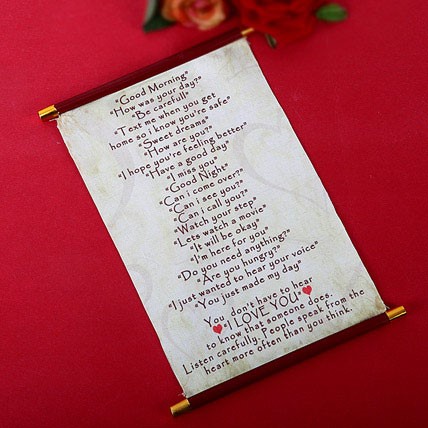 "Good Morning"
"How was your day?"
"Be carefull"
"Text me when you get
home so i know you're safe"
"Sweet dreams"
"How are you?"
"I hope you're feeling better"
"Have a good day"
"I miss you"
"Good Night"
"Can i come over?"
"Can i see you?"
"Can i call you?"
"Watch your step"
"Lets watch a movie"
"It will be okay"
"I'm here for you"
"Do you need anything?"
"Are you hungry?"
"I just wanted to hear your voice"
"You just made my day"
You don't have to hear
"I LOVE YOU"
to know that someone does.
Listen carefully. People speak from the
heart more often than you think.